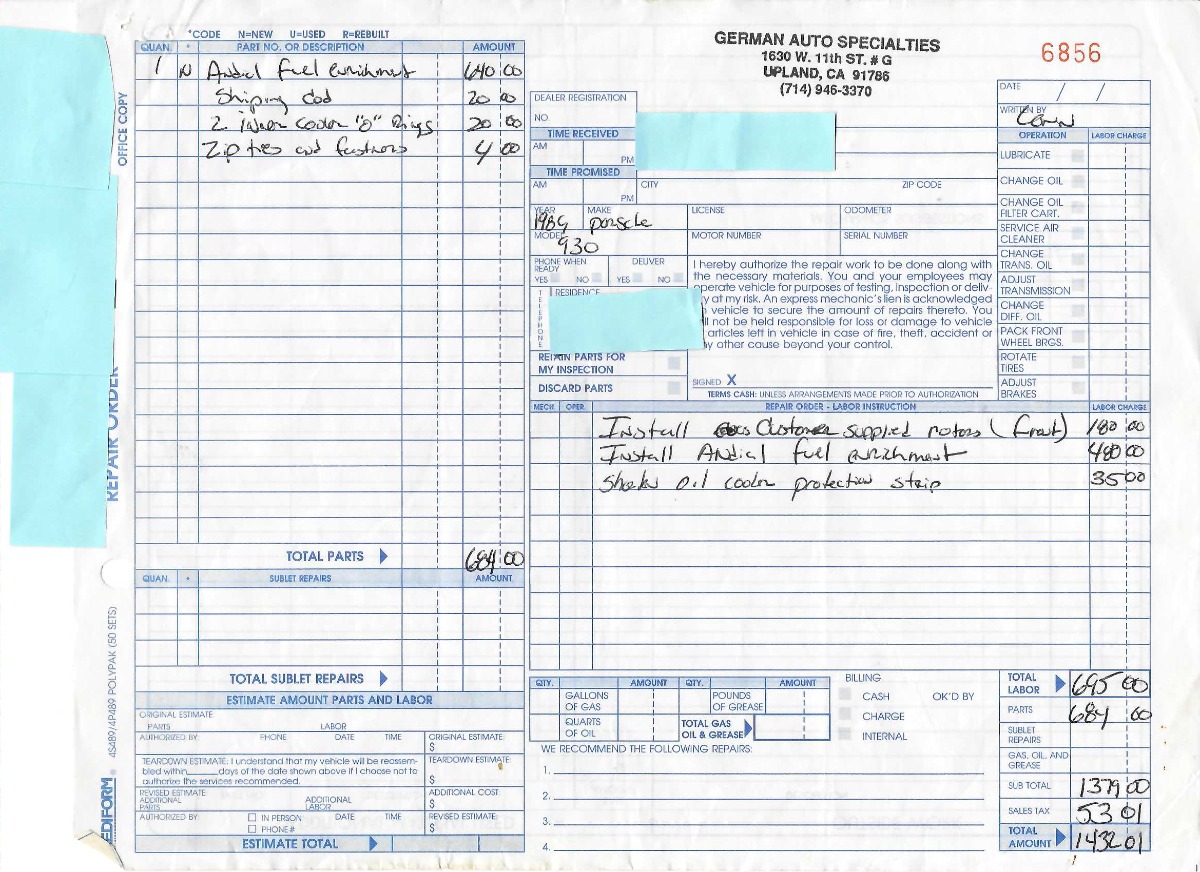 *CODE N=NEW U=USED R=REBUILT
QUAN. * PART NO. OR DESCRIPTION AMOUNT
1 N Andial fuel enrichment 640 00
Shiping Cod 20 00
2 Inter cooler "O" Rings 20 00
Zip ties and fastnors 4 00
TOTAL PARTS 684 00
QUAN. * SUBLET REPAIRS AMOUNT
TOTAL SUBLET REPAIRS
ESTIMATE AMOUNT PARTS AND LABOR
ORIGINAL ESTIMATE
PARTS LABOR
AUTHORIZED BY: PHONE DATE TIME ORIGINAL ESTIMATE
$
TEARDOWN ESTIMATE: I understand that my vehicle will be reassem-
bled within____days of the date shown above if I choose not to
authorize the services recommended.
TEARDOWN ESTIMATE
$
REVISED ESTIMATE
ADDITIONAL PARTS ADDITIONAL LABOR
ADDITIONAL COST:
$
AUTHORIZED BY: IN PERSON DATE TIME REVISED ESTIMATE
PHONE# $
ESTIMATE TOTAL
OFFICE COPY
REPAIR ORDER
4S489/4P489 POLYPAK (50 SETS)
EDIFORM
GERMAN AUTO SPECIALTIES
1630 W. 11th ST. # G
UPLAND, CA 91786
(714) 946-3370
6856
DATE / /
WRITTEN BY
DEALER REGISTRATION
NO.
TIME RECEIVED
AM PM
TIME PROMISED
AM PM
CITY ZIP CODE
YEAR 1989 MAKE porsche LICENSE ODOMETER
MODEL 930 MOTOR NUMBER SERIAL NUMBER
PHONE WHEN READY DELIVER
YES NO YES NO
TELEPHONE
RESIDENCE
RETAIN PARTS FOR
MY INSPECTION
DISCARD PARTS
I hereby authorize the repair work to be done along with
the necessary materials. You and your employees may
operate vehicle for purposes of testing, inspection or deliv-
y at my risk. An express mechanic's lien is acknowledged
vehicle to secure the amount of repairs thereto. You
not be held responsible for loss or damage to vehicle
articles left in vehicle in case of fire, theft, accident or
y other cause beyond your control.
SIGNED X
TERMS CASH: UNLESS ARRANGEMENTS MADE PRIOR TO AUTHORIZATION
OPERATION LABOR CHARGE
LUBRICATE
CHANGE OIL
CHANGE OIL
FILTER CART.
SERVICE AIR
CLEANER
CHANGE
TRANS. OIL
ADJUST
TRANSMISSION
CHANGE
DIFF. OIL
PACK FRONT
WHEEL BRGS.
ROTATE
TIRES
ADJUST
BRAKES
MECH. OPER. REPAIR ORDER - LABOR INSTRUCTION LABOR CHARGE
Install Customer supplied rotors (front) 180 00
Install Andial fuel enrichment 480 00
oil cooler protection strip 35 00
QTY. AMOUNT QTY. AMOUNT
GALLONS OF GAS POUNDS OF GREASE
QUARTS OF OIL TOTAL GAS OIL & GREASE
BILLING
CASH OK'D BY
CHARGE
INTERNAL
WE RECOMMEND THE FOLLOWING REPAIRS:
1.
2.
3.
4.
TOTAL LABOR 695 00
PARTS 684 00
SUBLET REPAIRS
GAS, OIL, AND GREASE
SUB TOTAL 1379 00
SALES TAX 53 01
TOTAL AMOUNT 1432 01